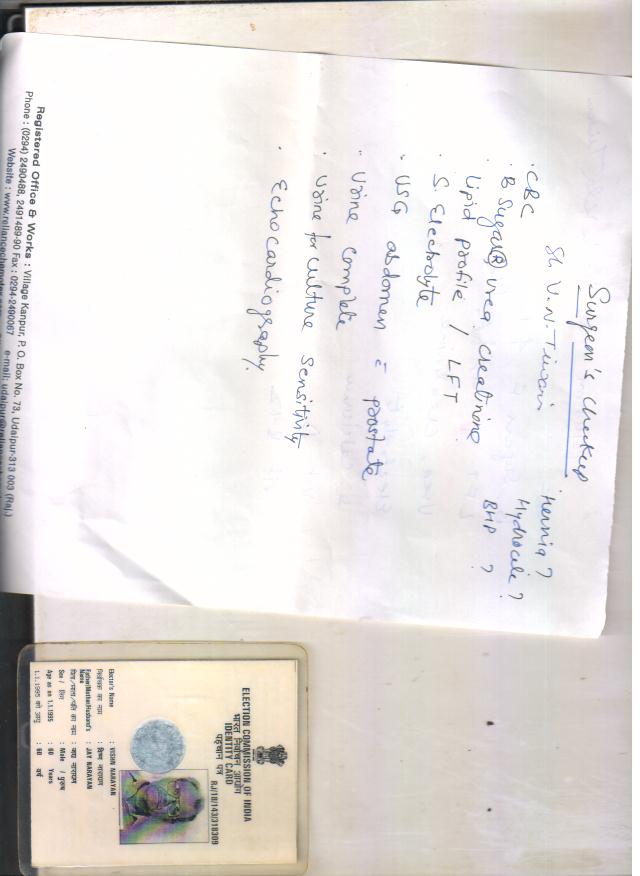 Surgeon's Checkup
Sh. V.N. Tiwari
Hernia ?
Hydrocele ?
BHP ?
· CBC
· B Sugar Ⓡ urea creatinine
· Lipid profile / LFT
· S. Electrolyte
· USG abdomen c̄ prostate
· Urine complete
· Urine for culture sensitivity
· Echocardiography.
Registered Office & Works : Village Kanpur, P. O. Box No. 73, Udaipur-313 003 (Raj.)
Phone : (0294) 2490488, 2491489-90 Fax : 0294-2490067
ELECTION COMMISSION OF INDIA
भारत निर्वाचन आयोग
IDENTITY CARD
पहचान पत्र
RJ/18/143/318309
Elector's Name : VISHN NARAYAN
निर्वाचक का नाम : विष्णु नारायण
Father/Mother/Husband's
Name : JAY NARAYAN
पिता/माता/पति का नाम : जय नारायण
Sex / लिंग : Male / पुरुष
Age as on 1.1.1995 : 60 Years
1.1.1995 को आयु : 60 वर्ष